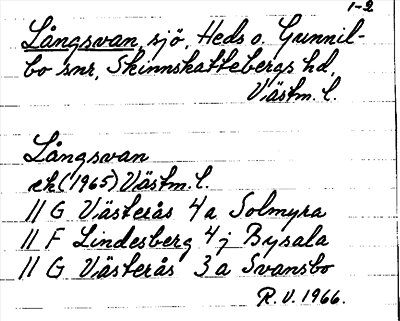 1-2
Långsvan, sjö, Heds o. Gunnil-
bo snr, Skinnskattebergs hd,
Västm. l.
Långsvan
ek (1965) Västm. l.
11 G Västerås 4 a Solmyra
11 F Lindesberg 4 j Bysala
11 G Västerås 3 a Svansbo
R. V. 1966.